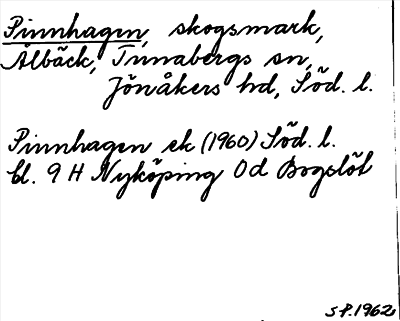 Pinnhagen, skogsmark,
Ålbäck, Tunabergs sn,
Jönåkers hd, Söd. l.
Pinnhagen ek (1960) Söd. l.
bl. 9 H Nyköping 0d Bogslöt
S P. 1962